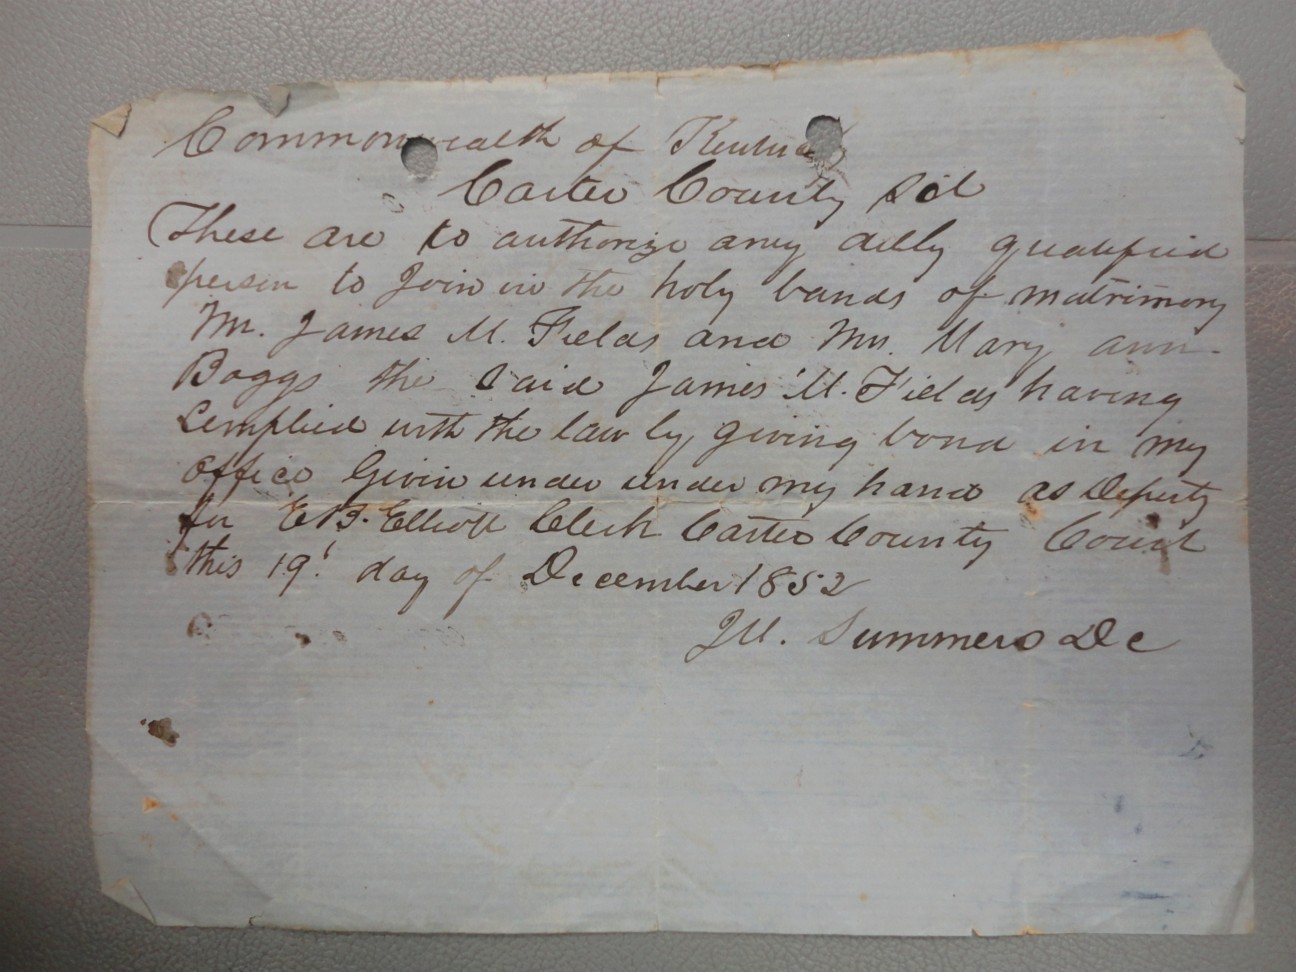 Commonwealth of Kentucky
Carter County Sct
These are to authorize any duly qualified
person to Join in the holy bands of matrimony
Mr. James M. Fields and Mrs. Mary ann
Boggs the Said James M. Fields having
Complied with the law by giving bond in my
office Givin under under my hand as Deputy
for E B. Elliott Clerk Carter County Court
this 19' day of December 1852
J M. Summers D c